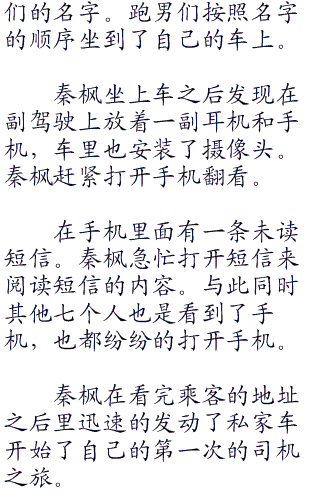 们的名字。跑男们按照名字
的顺序坐到了自己的车上。
秦枫坐上车之后发现在
副驾驶上放着一副耳机和手
机，车里也安装了摄像头。
秦枫赶紧打开手机翻看。
在手机里面有一条未读
短信。秦枫急忙打开短信来
阅读短信的内容。与此同时
其他七个人也是看到了手
机，也都纷纷的打开手机。
秦枫在看完乘客的地址
之后里迅速的发动了私家车
开始了自己的第一次的司机
之旅。